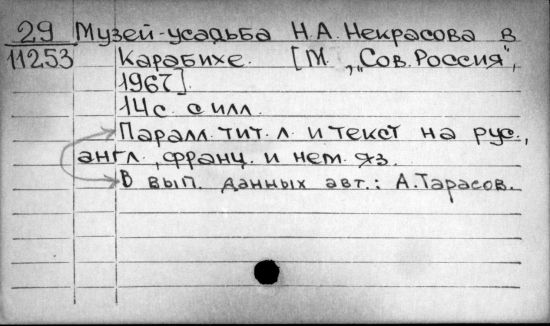 29 Музей-усадьба Н.А. Некрасова в
11253 Карабихе. [М., „Сов. Россия",
1967].
14 с. с илл.
Паралл. тит. л. и текст на рус.,
англ., франц. и нем. яз.
В вып. данных авт.: А. Тарасов.